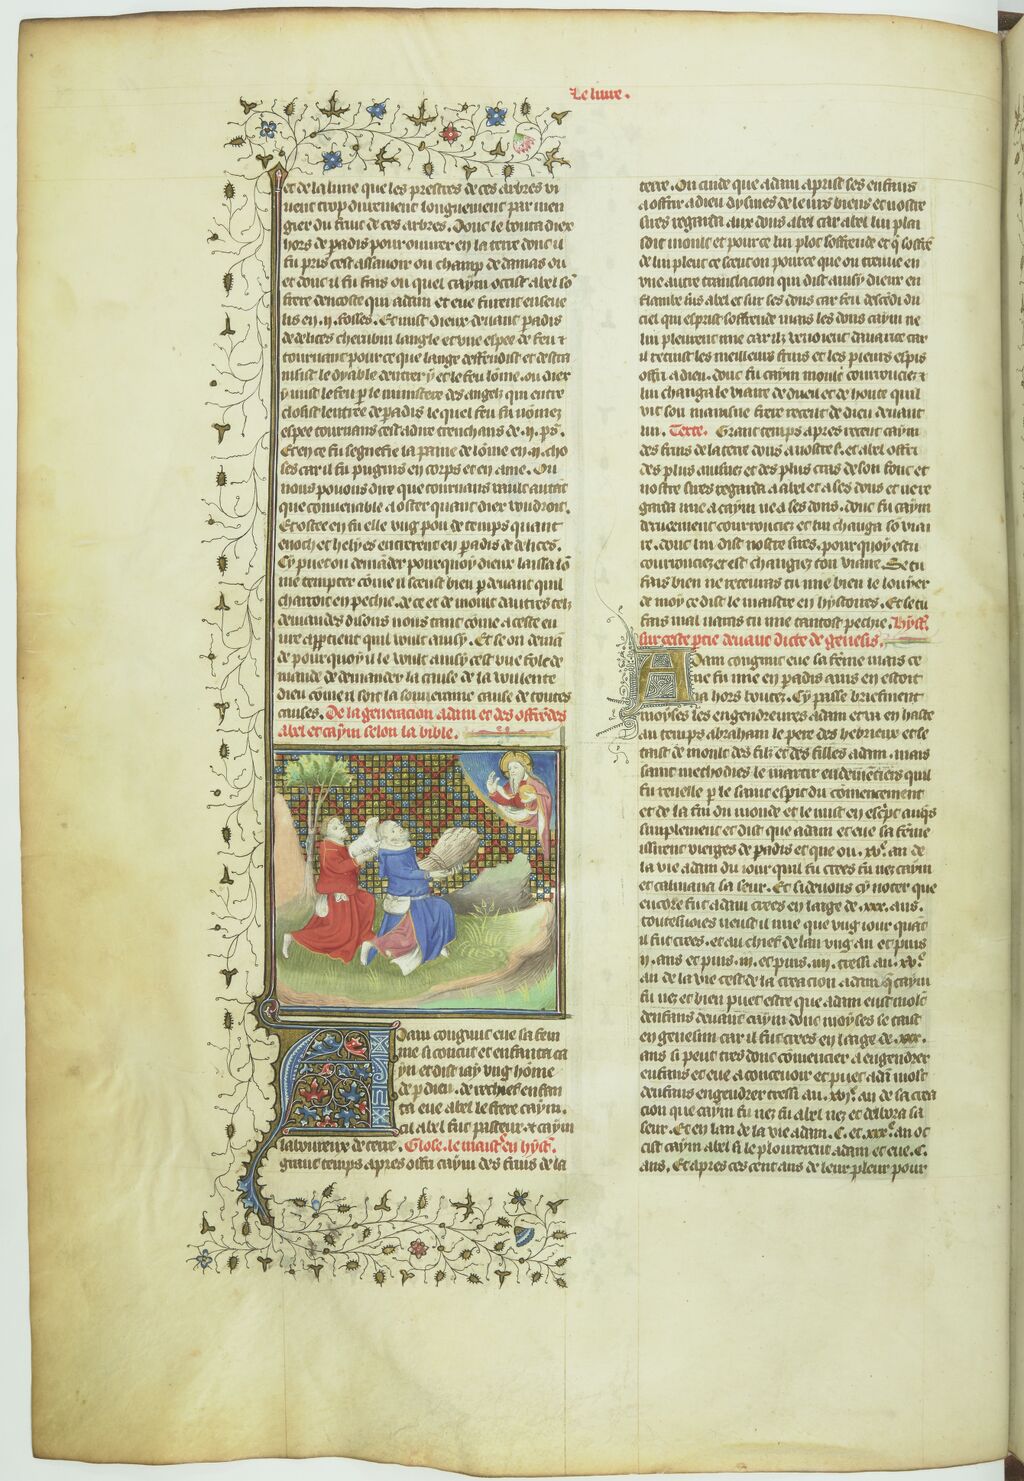 Le livre.
et de la lune que les prestres de ces arbres vi
uent trop durement longuement par men
gier du fruit de ces arbres. Donc le bouta dieu
hors de padis pour ouurer en la terre dont il
fu pris cest assauoir ou champ de damas ou
et dont il fu fais ou quel cayin occist abel sō
frere dencoste qui adam et eue furent enseue
lis en .ij. fosses. Et mist dieux deuant padis
de delices cherubin langle et vne espee de feu et
tournant pour ce que lange deffendist et desta
nisist le dyable dentrer y et le feu lōme. ou dieu
y mist le feu p le ministere des angelz qui entre
closist lentree de padis le quel feu fu nōmez
espee tournans cest adire trenchans de .ij. ps.
Et en ce fu segnefie la paine de lōme en .ij. cho
ses car il fu pugnis en corps et en ame. Ou
nous pouons dire que tournans vault autāt
que conuenable a oster quant dieu voudroit.
Et ostee en fu elle vng pou de temps quant
enoch et helyes entrerent en padis de delices.
Cy puet on demāder pourquoy dieux laissa lō
me tempter cōme il sceust bien p deuant quil
charroit en pechie. de ce et de moult dautres telz
demandes disons nous tant cōme a ceste eu
ure apptient quil voult ainsy. Et se on demā
de pourquoy il le voult ainsy cest vne fole de
mande de demander la cause de la voulente
dieu cōme il soit la souueraine cause de toutes
causes. De la generacion adam et des offrēdes
abel et cayin selon la bible.
Adam congnut eue sa fem
me si conciut et enfanta ca
yn et dist iay vng hōme
de p dieu. de rechief enfan
ta eue abel le frere cayin.
cil abel fut pasteur et cayin
laboureux de terre. Glose. le maistre en hyst.
grant temps apres offri cayin des fruis de la
terre. On cuide que adam aprist ses enfans
a offrir a dieu dysmes de leurs biens et nostre
sires regarda aux dons abel car abel lui plai
soit moult et pour ce lui plot soffrende et q̄ soffrē
de lui pleut ce sceut on pource que on treuue en
vne autre translacion qui dist ainsy dieux en
flambe sus abel et sur ses dons car feu descēdi du
ciel qui esprist soffrende mais les dons cayin ne
lui pleurent mie car ilz venoient dauarice car
il retint les meilleurs fruis et les pieurs espis
offri a dieu. donc fu cayin moult courrouciez et
lui changa le viaire de dueil et de honte quil
vit son mainsne frere receut de dieu deuant
lui. Texte. Grant temps apres receut cayin
des fruis de la terre dons a nostre s. et abel offri
des plus ainsnez et des plus cras de son fouc et
nostre sires regarda a abel et a ses dons et ne re
garda mie a cayin ne a ses dons. donc fu cayin
durement courrouciez et lui changa so viai
re. donc lui dist nostre sires. pourquoy es tu
courrouciez et est changiez ton viaire. Se tu
fais bien ne receuras tu mie bien le louyer
de moy ce dist le maistre en hystoires. Et se tu
fais mal naras tu mie tantost pechie. Hyst.
sur ceste ptie deuant dicte de genesis.
Adam congnut eue sa fēme mais ce
ne fu mie en padis ains en estoit
ia hors boutez. Cy passe briefment
moyses les engendreures adam et va en haste
au temps abraham le pere des hebrieux et se
taist de moult des filz et des filles adam. mais
saint methodies le martir endementiers quil
fu
reuelle p le saint espit du cōmencement
et de la fin du monde et le mist en escript auqs
simplement et dist que adam et eue sa fēme
issirent vierges de padis et que ou .xv. an de
la vie adam du iour quil fu crees fu nez cayin
et calmana sa seur. Et si deuons cy noter que
encore fut adam crees en laage de .xxx. ans.
toutesuoies neust il mie que vng iour quāt
il fut crees. et au chief de lan vng an et puis
.ij. ans et puis .iij. et puis .iiij. tressi au .xv.
an de la vie cest de la creacion adam q̄ cayin
fu nez et bien puet estre que adam eust moūt
denfans deuant cayin dont moyses se taist
en genesim car il fut crees en laage de .xxx.
ans si peut tres donc cōmencier a engendrer
enfans et eue a conceuoir et puet adā moūt
denfans engendrer tressi au .xvij. an de sa crea
cion que cayin fu nez fu abel nez et delbora sa
seur. Et en lan de la vie adam .C. et .xxx. an oc
cist cayin abel si le plourerent adam et eue .C.
ans. Et apres ces cent ans de leur pleur pour